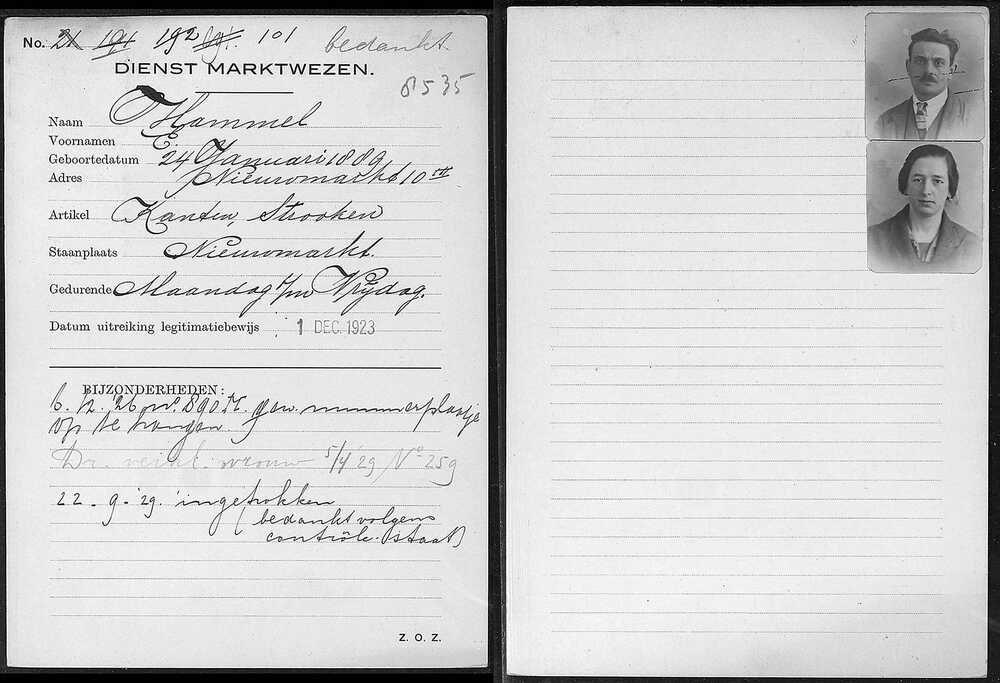 No. 21 191 192 191. 101 bedankt.
DIENST MARKTWEZEN.
8535
Naam Hammel
Voornamen E.
Geboortedatum 24 Januari 1889
Adres Nieuwmarkt 10
Artikel Kanten, Strooken
Staanplaats Nieuwmarkt.
Gedurende Maandag t/m Vrijdag.
Datum uitreiking legitimatiebewijs 1 DEC. 1923
BIJZONDERHEDEN:
6. 12. '26 no. 890 gew. nummerplaatje
op te hangen.
Dr. vrouw 5/4 29 No 259
22-9-'29. ingetrokken
(bedankt volgens
contrôle-staat)
Z. O. Z.